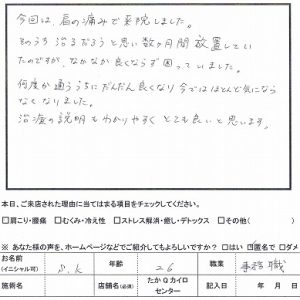 今回は、肩の痛みで来院しました。
そのうち治るだろうと思い数ヶ月間放置してい
たのですが、なかなか良くならず困っていました。
何度か通ううちにだんだん良くなり今ではほとんど気になら
なくなりました。
治療の説明もわかりやすくとても良いと思います。
本日、ご来店された理由に当てはまる項目をチェックしてください。
□肩こり・腰痛 □むくみ・冷え性 □ストレス解消・癒し・デトックス □その他( )
※ あなた様の声を、ホームページなどでご紹介してもよろしいですか? □はい ☑匿名で □ダメ
お名前 (イニシャル可) S.K 年齢 26 職業 事務職
施術名 店舗名(必須) たかQカイロセンター